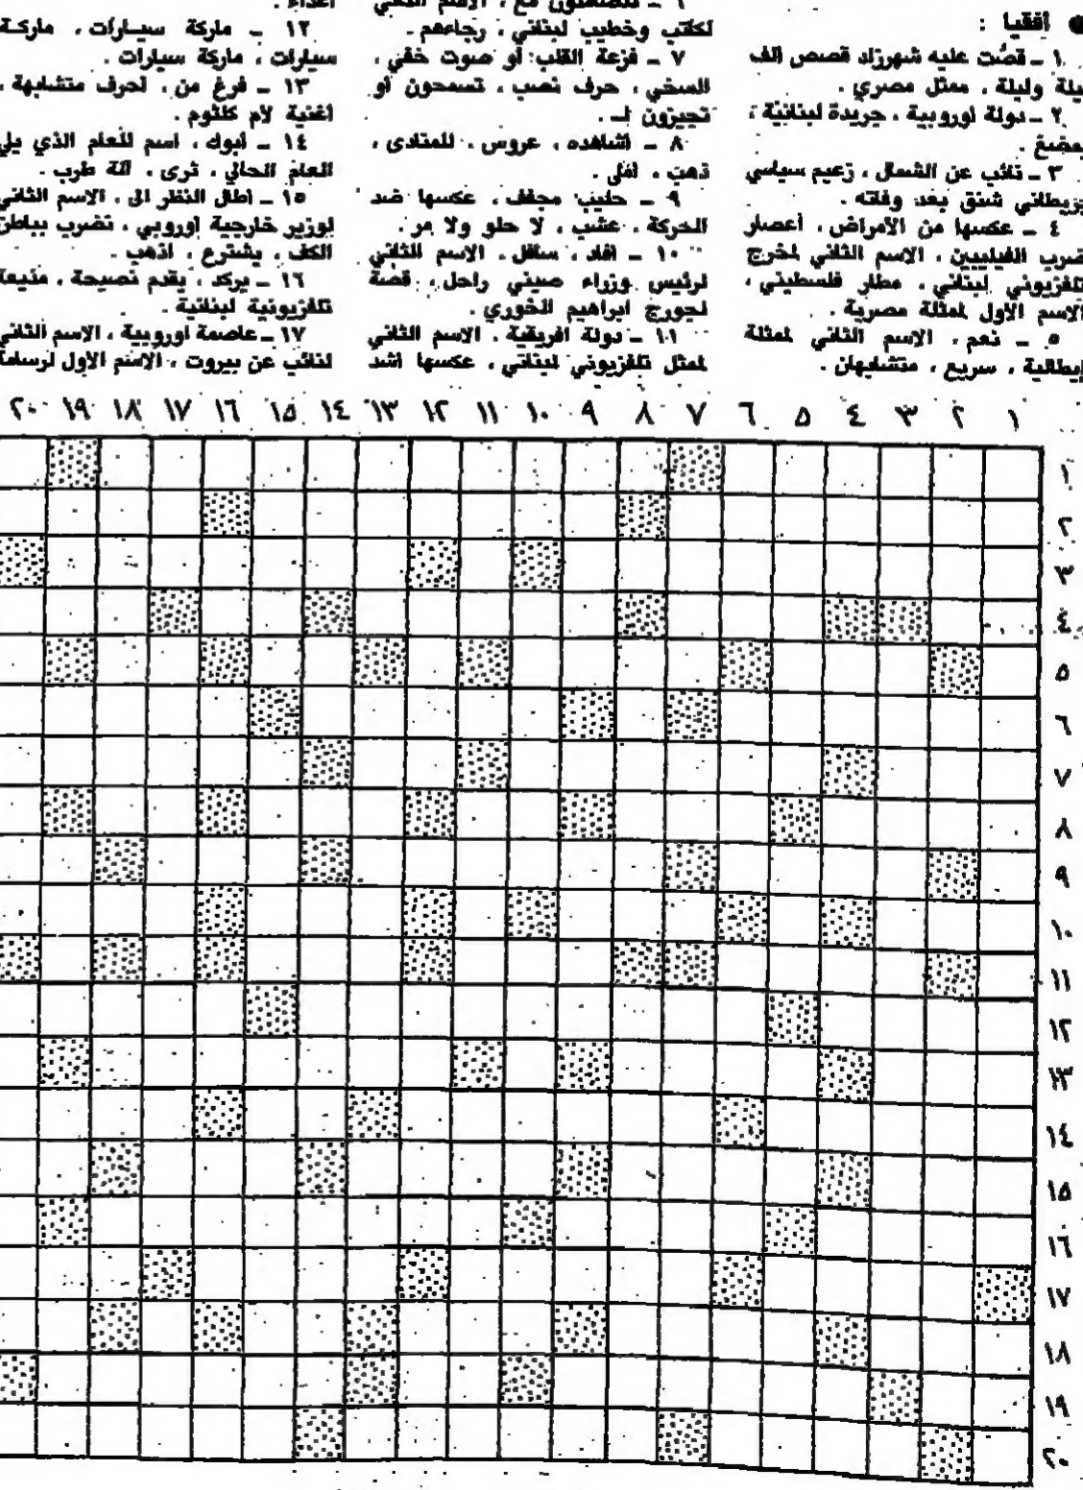 ● أفقيا :
١ ـ قصّت عليه شهرزاد قصص الف
ليلة وليلة ، ممثل مصري .
٢ ـ دولة اوروبية ، جريدة لبنانية ،
٣ ـ نائب عن الشمال ، زعيم سياسي
بريطاني شنق بعد وفاته .
٤ ـ عكسها من الأمراض ، أعصار
ضرب الفيليبين ، الاسم الثاني لمخرج
تلفزيوني لبناني ، مطار فلسطيني ،
الاسم الأول لممثلة مصرية .
٥ ـ نعم ، الاسم الثاني لممثلة
إيطالية ، سريع ، متشابهان .
لكاتب وخطيب لبناني ، رجاءهم .
٧ ـ فزعة القلب أو صوت خفي ،
السخي ، حرف نصب ، تسمحون أو
تجيزون لـ .
٨ ـ اشاهده ، عروس ، للمنادى ،
ذهب ،
٩ ـ حليب مجفف ، عكسها ضد
الحركة ، عشب ، لا حلو ولا مر .
١٠ ـ افاد ، سافل ، الاسم الثاني
لرئيس وزراء صيني راحل ، قصة
لجورج ابراهيم الخوري .
١١ ـ دولة افريقية ، الاسم الثاني
لممثل تلفزيوني لبناني ، عكسها اشد
اعداء .
١٢ ـ ماركة سيارات ، ماركة
سيارات ، ماركة سيارات .
١٣ ـ فرغ من ، احرف متشابهة ،
اغنية لأم كلثوم .
١٤ ـ أبوك ، اسم للعام الذي يلي
العام الحالي ، ثرى ، آلة طرب .
١٥ ـ اطال النظر الى ، الاسم الثاني
لوزير خارجية اوروبي ، نضرب بباطن
الكف ، يشترع ، اذهب .
١٦ ـ يركد ، يقدم نصيحة ، مذيعة
تلفزيونية لبنانية .
١٧ ـ عاصمة اوروبية ، الاسم الثاني
لنائب عن بيروت ، الاسم الأول لرسامة
١ ٢ ٣ ٤ ٥ ٦ ٧ ٨ ٩ ١٠ ١١ ١٢ ١٣ ١٤ ١٥ ١٦ ١٧ ١٨ ١٩ ٢٠
١
٢
٣
٤
٥
٦
٧
٨
٩
١٠
١١
١٢
١٣
١٤
١٥
١٦
١٧
١٨
١٩
٢٠